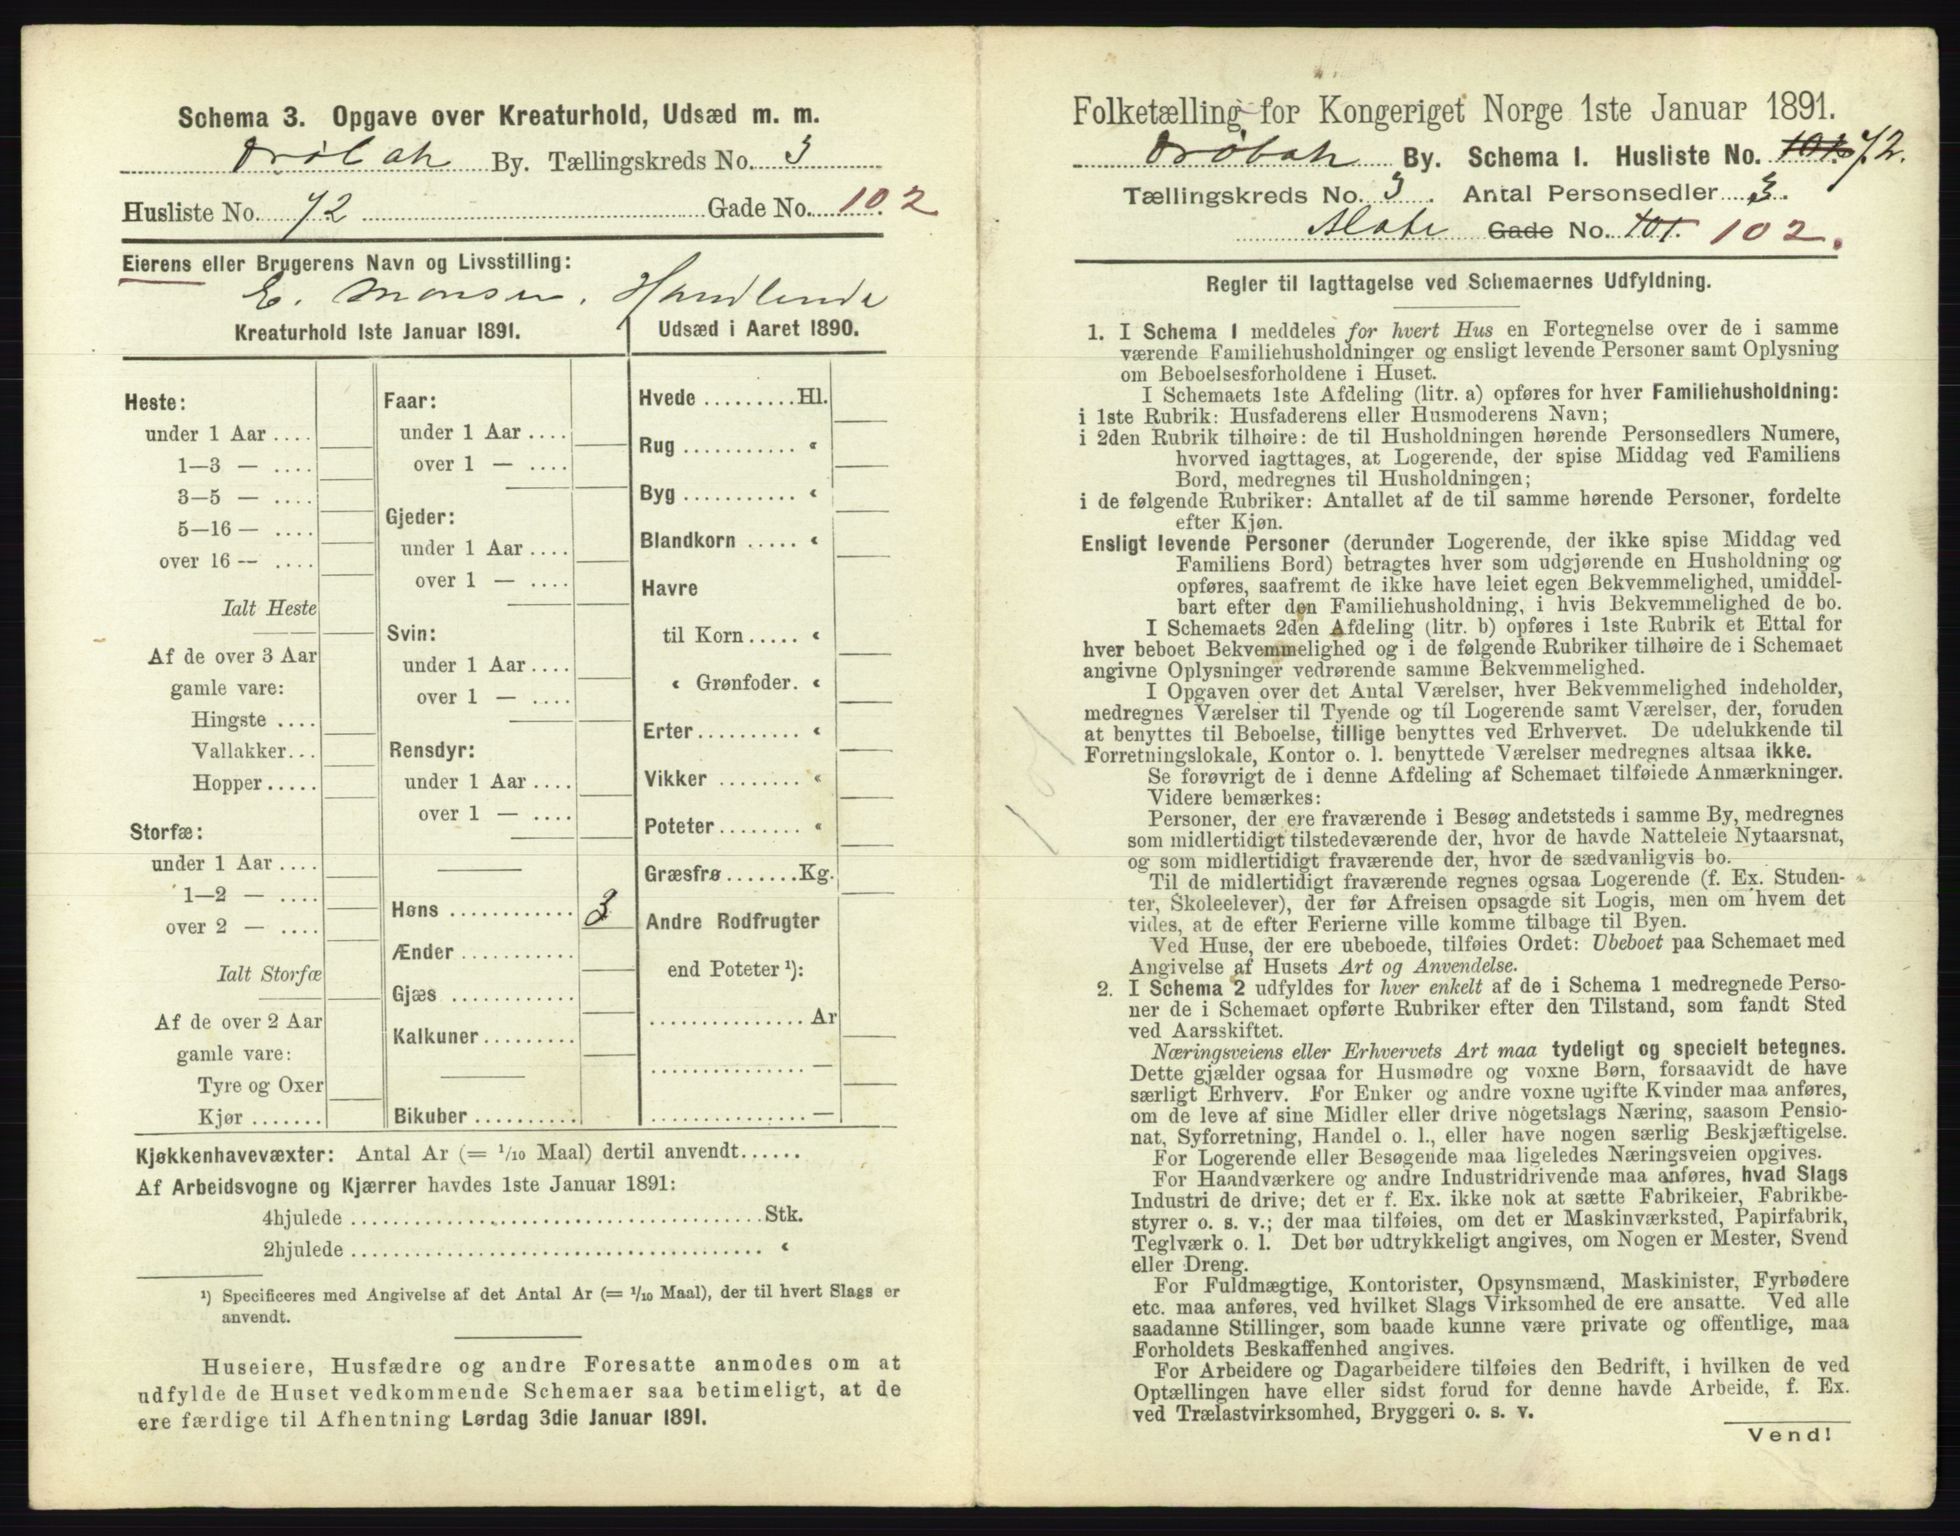 Schema 3. Opgave over Kreaturhold, Udsæd m. m.
Drøbak By. Tællingskreds No. 3
Husliste No. 72 Gade No. 102
Eierens eller Brugerens Navn og Livsstilling:
E. Monsen. Handlende
Kreaturhold 1ste Januar 1891.
Heste:
under 1 Aar ....
1—3 — ....
3—5 — ....
5—16 — ....
over 16 — ....
Ialt Heste
Af de over 3 Aar
gamle vare:
Hingste ....
Vallakker...
Hopper.....
Storfæ:
under 1 Aar ....
1—2 — ....
over 2 — ....
Ialt Storfæ
Af de over 2 Aar
gamle vare:
Tyre og Oxer
Kjør .......
Faar:
under 1 Aar ....
over 1 — ....
Gjeder:
under 1 Aar ....
over 1 — ....
Svin:
under 1 Aar ....
over 1 — ....
Rensdyr:
under 1 Aar ....
over 1 — ....
Høns ............ 3
Ænder ...........
Gjæs ............
Kalkuner.........
Bikuber ..........
Udsæd i Aaret 1890.
Hvede .........Hl.
Rug ........... "
Byg ........... "
Blandkorn ..... "
Havre
til Korn ..... "
" Grønfoder. "
Erter.......... "
Vikker ........ "
Poteter........ "
Græsfrø.......Kg.
Andre Rodfrugter
end Poteter ¹):
...............Ar
............... —
............... —
Kjøkkenhavevæxter: Antal Ar (= 1/10 Maal) dertil anvendt......
Af Arbeidsvogne og Kjærrer havdes 1ste Januar 1891:
4hjulede ........................................Stk.
2hjulede ........................................ "
¹) Specificeres med Angivelse af det Antal Ar (= 1/10 Maal), der til hvert Slags er
anvendt.
Huseiere, Husfædre og andre Foresatte anmodes om at
udfylde de Huset vedkommende Schemaer saa betimeligt, at de
ere færdige til Afhentning Lørdag 3die Januar 1891.
101
Folketælling for Kongeriget Norge 1ste Januar 1891.
Drøbak By. Schema I. Husliste No. 101. 72.
Tællingskreds No. 3. Antal Personsedler 3.
Gade No. 101. 102.
Regler til Iagttagelse ved Schemaernes Udfyldning.
1. I Schema 1 meddeles for hvert Hus en Fortegnelse over de i samme
værende Familiehusholdninger og ensligt levende Personer samt Oplysning
om Beboelsesforholdene i Huset.
I Schemaets 1ste Afdeling (litr. a) opføres for hver Familiehusholdning:
i 1ste Rubrik: Husfaderens eller Husmoderens Navn;
i 2den Rubrik tilhøire: de til Husholdningen hørende Personsedlers Numere,
hvorved iagttages, at Logerende, der spise Middag ved Familiens
Bord, medregnes til Husholdningen;
i de følgende Rubriker: Antallet af de til samme hørende Personer, fordelte
efter Kjøn.
Ensligt levende Personer (derunder Logerende, der ikke spise Middag ved
Familiens Bord) betragtes hver som udgjørende en Husholdning og
opføres, saafremt de ikke have leiet egen Bekvemmelighed, umiddel-
bart efter den Familiehusholdning, i hvis Bekvemmelighed de bo.
I Schemaets 2den Afdeling (litr. b) opføres i 1ste Rubrik et Ettal for
hver beboet Bekvemmelighed og i de følgende Rubriker tilhøire de i Schemaet
angivne Oplysninger vedrørende samme Bekvemmelighed.
I Opgaven over det Antal Værelser, hver Bekvemmelighed indeholder,
medregnes Værelser til Tyende og til Logerende samt Værelser, der, foruden
at benyttes til Beboelse, tillige benyttes ved Erhvervet. De udelukkende til
Forretningslokale, Kontor o. l. benyttede Værelser medregnes altsaa ikke.
Se forøvrigt de i denne Afdeling af Schemaet tilføiede Anmærkninger.
Videre bemærkes:
Personer, der ere fraværende i Besøg andetsteds i samme By, medregnes
som midlertidigt tilstedeværende der, hvor de havde Natteleie Nytaarsnat,
og som midlertidigt fraværende der, hvor de sædvanligvis bo.
Til de midlertidigt fraværende regnes ogsaa Logerende (f. Ex. Studen-
ter, Skoleelever), der før Afreisen opsagde sit Logis, men om hvem det
vides, at de efter Ferierne ville komme tilbage til Byen.
Ved Huse, der ere ubeboede, tilføies Ordet: Ubeboet paa Schemaet med
Angivelse af Husets Art og Anvendelse.
2. I Schema 2 udfyldes for hver enkelt af de i Schema 1 medregnede Perso-
ner de i Schemaet opførte Rubriker efter den Tilstand, som fandt Sted
ved Aarsskiftet.
Næringsveiens eller Erhvervets Art maa tydeligt og specielt betegnes.
Dette gjælder ogsaa for Husmødre og voxne Børn, forsaavidt de have
særligt Erhverv. For Enker og andre voxne ugifte Kvinder maa anføres,
om de leve af sine Midler eller drive nogetslags Næring, saasom Pensio-
nat, Syforretning, Handel o. l., eller have nogen særlig Beskjæftigelse.
For Logerende eller Besøgende maa ligeledes Næringsveien opgives.
For Haandværkere og andre Industridrivende maa anføres, hvad Slags
Industri de drive; det er f. Ex. ikke nok at sætte Fabrikeier, Fabrikbe-
styrer o. s. v.; der maa tilføies, om det er Maskinværksted, Papirfabrik,
Teglværk o. l. Det bør udtrykkeligt angives, om Nogen er Mester, Svend
eller Dreng.
For Fuldmægtige, Kontorister, Opsynsmænd, Maskinister, Fyrbødere
etc. maa anføres, ved hvilket Slags Virksomhed de ere ansatte. Ved alle
saadanne Stillinger, som baade kunne være private og offentlige, maa
Forholdets Beskaffenhed angives.
For Arbeidere og Dagarbeidere tilføies den Bedrift, i hvilken de ved
Optællingen have eller sidst forud for denne havde Arbeide, f. Ex.
ved Trælastvirksomhed, Bryggeri o. s. v.
Vend!